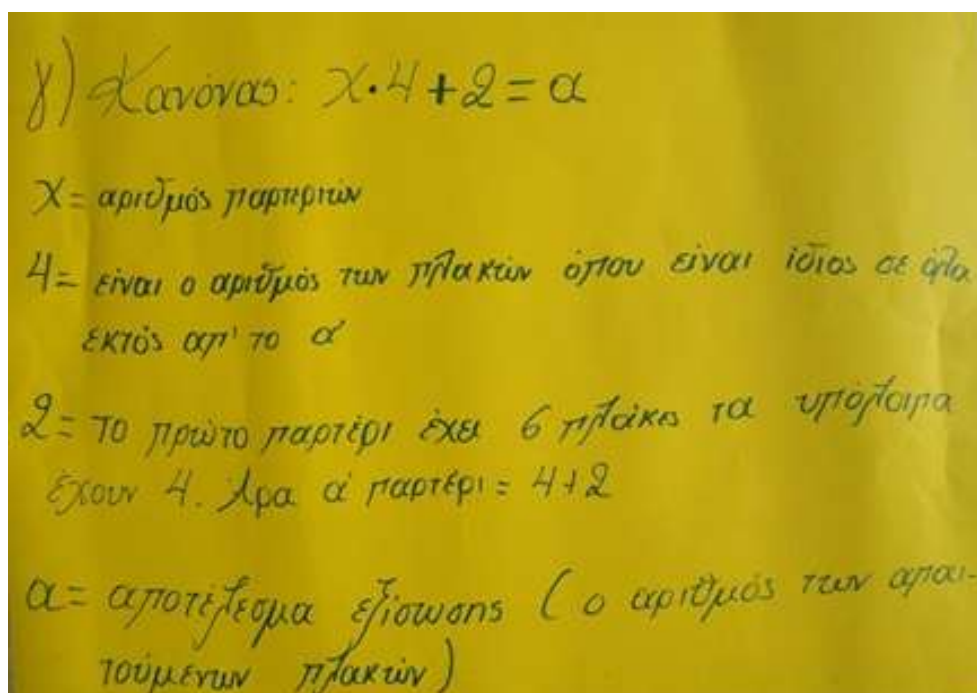 γ) Κανόνας: χ·4+2=α
χ= αριθμός παρτεριών
4= είναι ο αριθμός των πλακών όπου είναι ίδιος σε όλα
εκτός απ' το α'
2= το πρώτο παρτέρι έχει 6 πλάκες τα υπόλοιπα
έχουν 4. Άρα α' παρτέρι= 4+2
α= αποτέλεσμα εξίσωσης (ο αριθμός των απαι-
τούμενων πλακών)